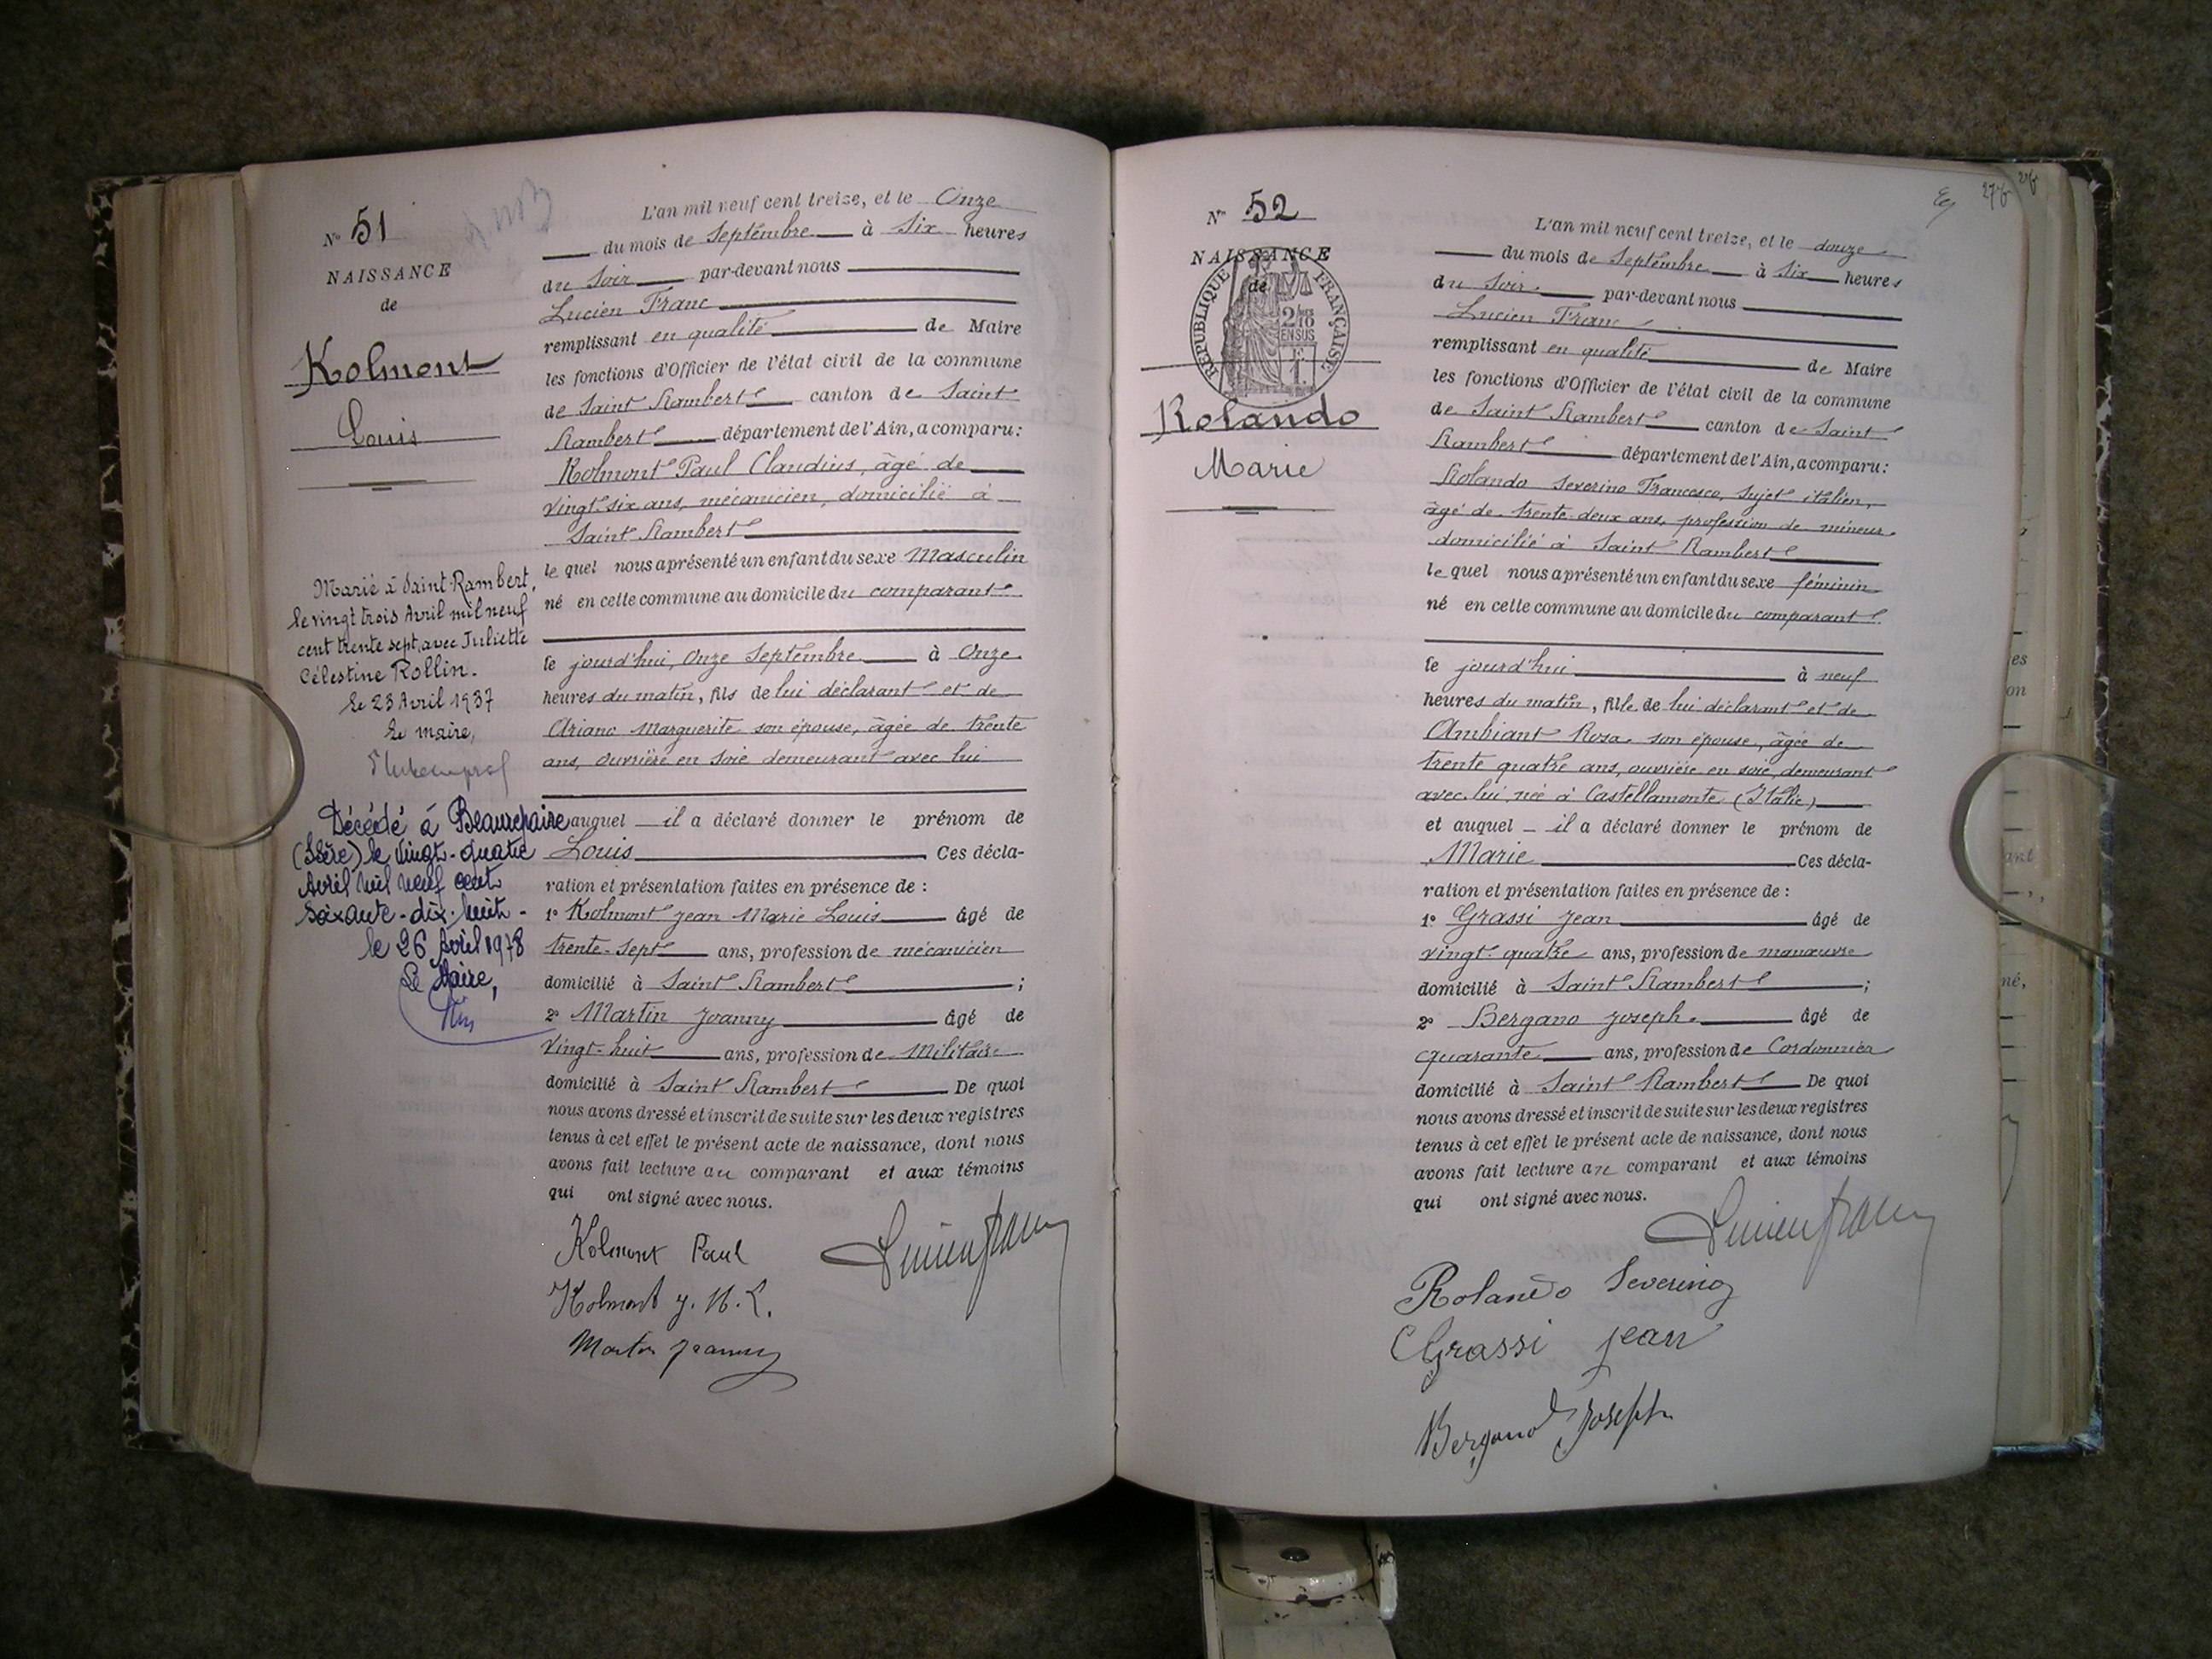 N° 51
NAISSANCE
de
Kolmont
Louis
Marié à Saint-Rambert,
le vingt trois Avril mil neuf
cent trente sept, avec Juliette
Célestine Rollin.
Le 23 Avril 1937
Le maire,
Décédé à Beaurepaire
(Isère) le vingt-quatre
Avril mil neuf cent
soixante-dix-huit-
le 26 Avril 1978
Le Maire,
L'an mil neuf cent treize, et le Onze
du mois de Septembre à Six heures
du Soir par-devant nous
Lucien Franc
remplissant en qualité de Maire
les fonctions d'Officier de l'état civil de la commune
de Saint Rambert canton de Saint
Rambert département de l'Ain, a comparu :
Kolmont Paul Claudius, âgé de
vingt-six ans, mécanicien, domicilié à
Saint Rambert
le quel nous a présenté un enfant du sexe Masculin
né en cette commune au domicile du comparant
le jourd'hui, Onze Septembre à Onze
heures du matin, fils de lui déclarant et de
Ariano Marguerite son épouse, âgée de trente
ans, ouvrière en soie demeurant avec lui
auquel il a déclaré donner le prénom de
Louis Ces décla-
ration et présentation faites en présence de :
1° Kolmont Jean Marie Louis âgé de
trente-sept ans, profession de mécanicien
domicilié à Saint Rambert ;
2° Martin Joanny âgé de
vingt-huit ans, profession de Militaire
domicilié à Saint Rambert De quoi
nous avons dressé et inscrit de suite sur les deux registres
tenus à cet effet le présent acte de naissance, dont nous
avons fait lecture au comparant et aux témoins
qui ont signé avec nous.
Kolmont Paul
Lucien Franc
Kolmont J. M. L.
Martin Joanny
27
N° 52
NAISSANCE
de
RÉPUBLIQUE FRANÇAISE
2/10
EN SUS
Rolando
Marie
L'an mil neuf cent treize, et le douze
du mois de Septembre à Six heures
du Soir par-devant nous
Lucien Franc
remplissant en qualité de Maire
les fonctions d'Officier de l'état civil de la commune
de Saint Rambert canton de Saint
Rambert département de l'Ain, a comparu :
Rolando Severino Francesco, Sujet italien,
âgé de trente-deux ans, profession de mineur
domicilié à Saint Rambert
le quel nous a présenté un enfant du sexe féminin
né en cette commune au domicile du comparant
le jourd'hui à neuf
heures du matin, fille de lui déclarant et de
Ambiant Rosa son épouse, âgée de
trente quatre ans, ouvrière en soie, demeurant
avec lui, née à Castellamonte (Italie)
et auquel il a déclaré donner le prénom de
Marie Ces décla-
ration et présentation faites en présence de :
1° Grassi Jean âgé de
vingt-quatre ans, profession de manœuvre
domicilié à Saint Rambert ;
2° Bergano Joseph âgé de
quarante ans, profession de Cordonnier
domicilié à Saint Rambert De quoi
nous avons dressé et inscrit de suite sur les deux registres
tenus à cet effet le présent acte de naissance, dont nous
avons fait lecture au comparant et aux témoins
qui ont signé avec nous.
Lucien Franc
Rolando Severino
Grassi Jean
Bergano Joseph